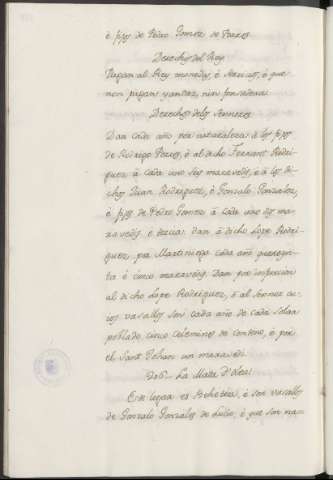 è fijos de Pedro Gomez de Porres.
Derechos del Rey
Pagan al Rey moneda, è servicios, è que
non pagan yantar, nin fonsadera.
Derechos delos Sennores
Dan cada año por naturaleza à los fijos
de Rodrigo Perez, è al dicho Ferrant Rodri-
guez, à cada uno seis maravedis, è à los di-
chos Juan Rodriguez, è Gonzalo Gonzalez,
è fijos de Pedro Gomez à cada uno dos ma-
ravedis è tercia: dan à dicho Lope Rodri-
guez, por Martiniega cada año quaren-
ta è cinco maravedis. Dan por infurcion
al dicho Lope Rodriguez, è al Sennor cu-
ios vasallos son cada año de cada solar
poblado, cinco celemines de centeno, è por
el Sant Johan un maravedi.
La Matta d'
Este logar es Behetria, è son vasallos
de Gonzalo Gonzalez de Lucio, è que son na-